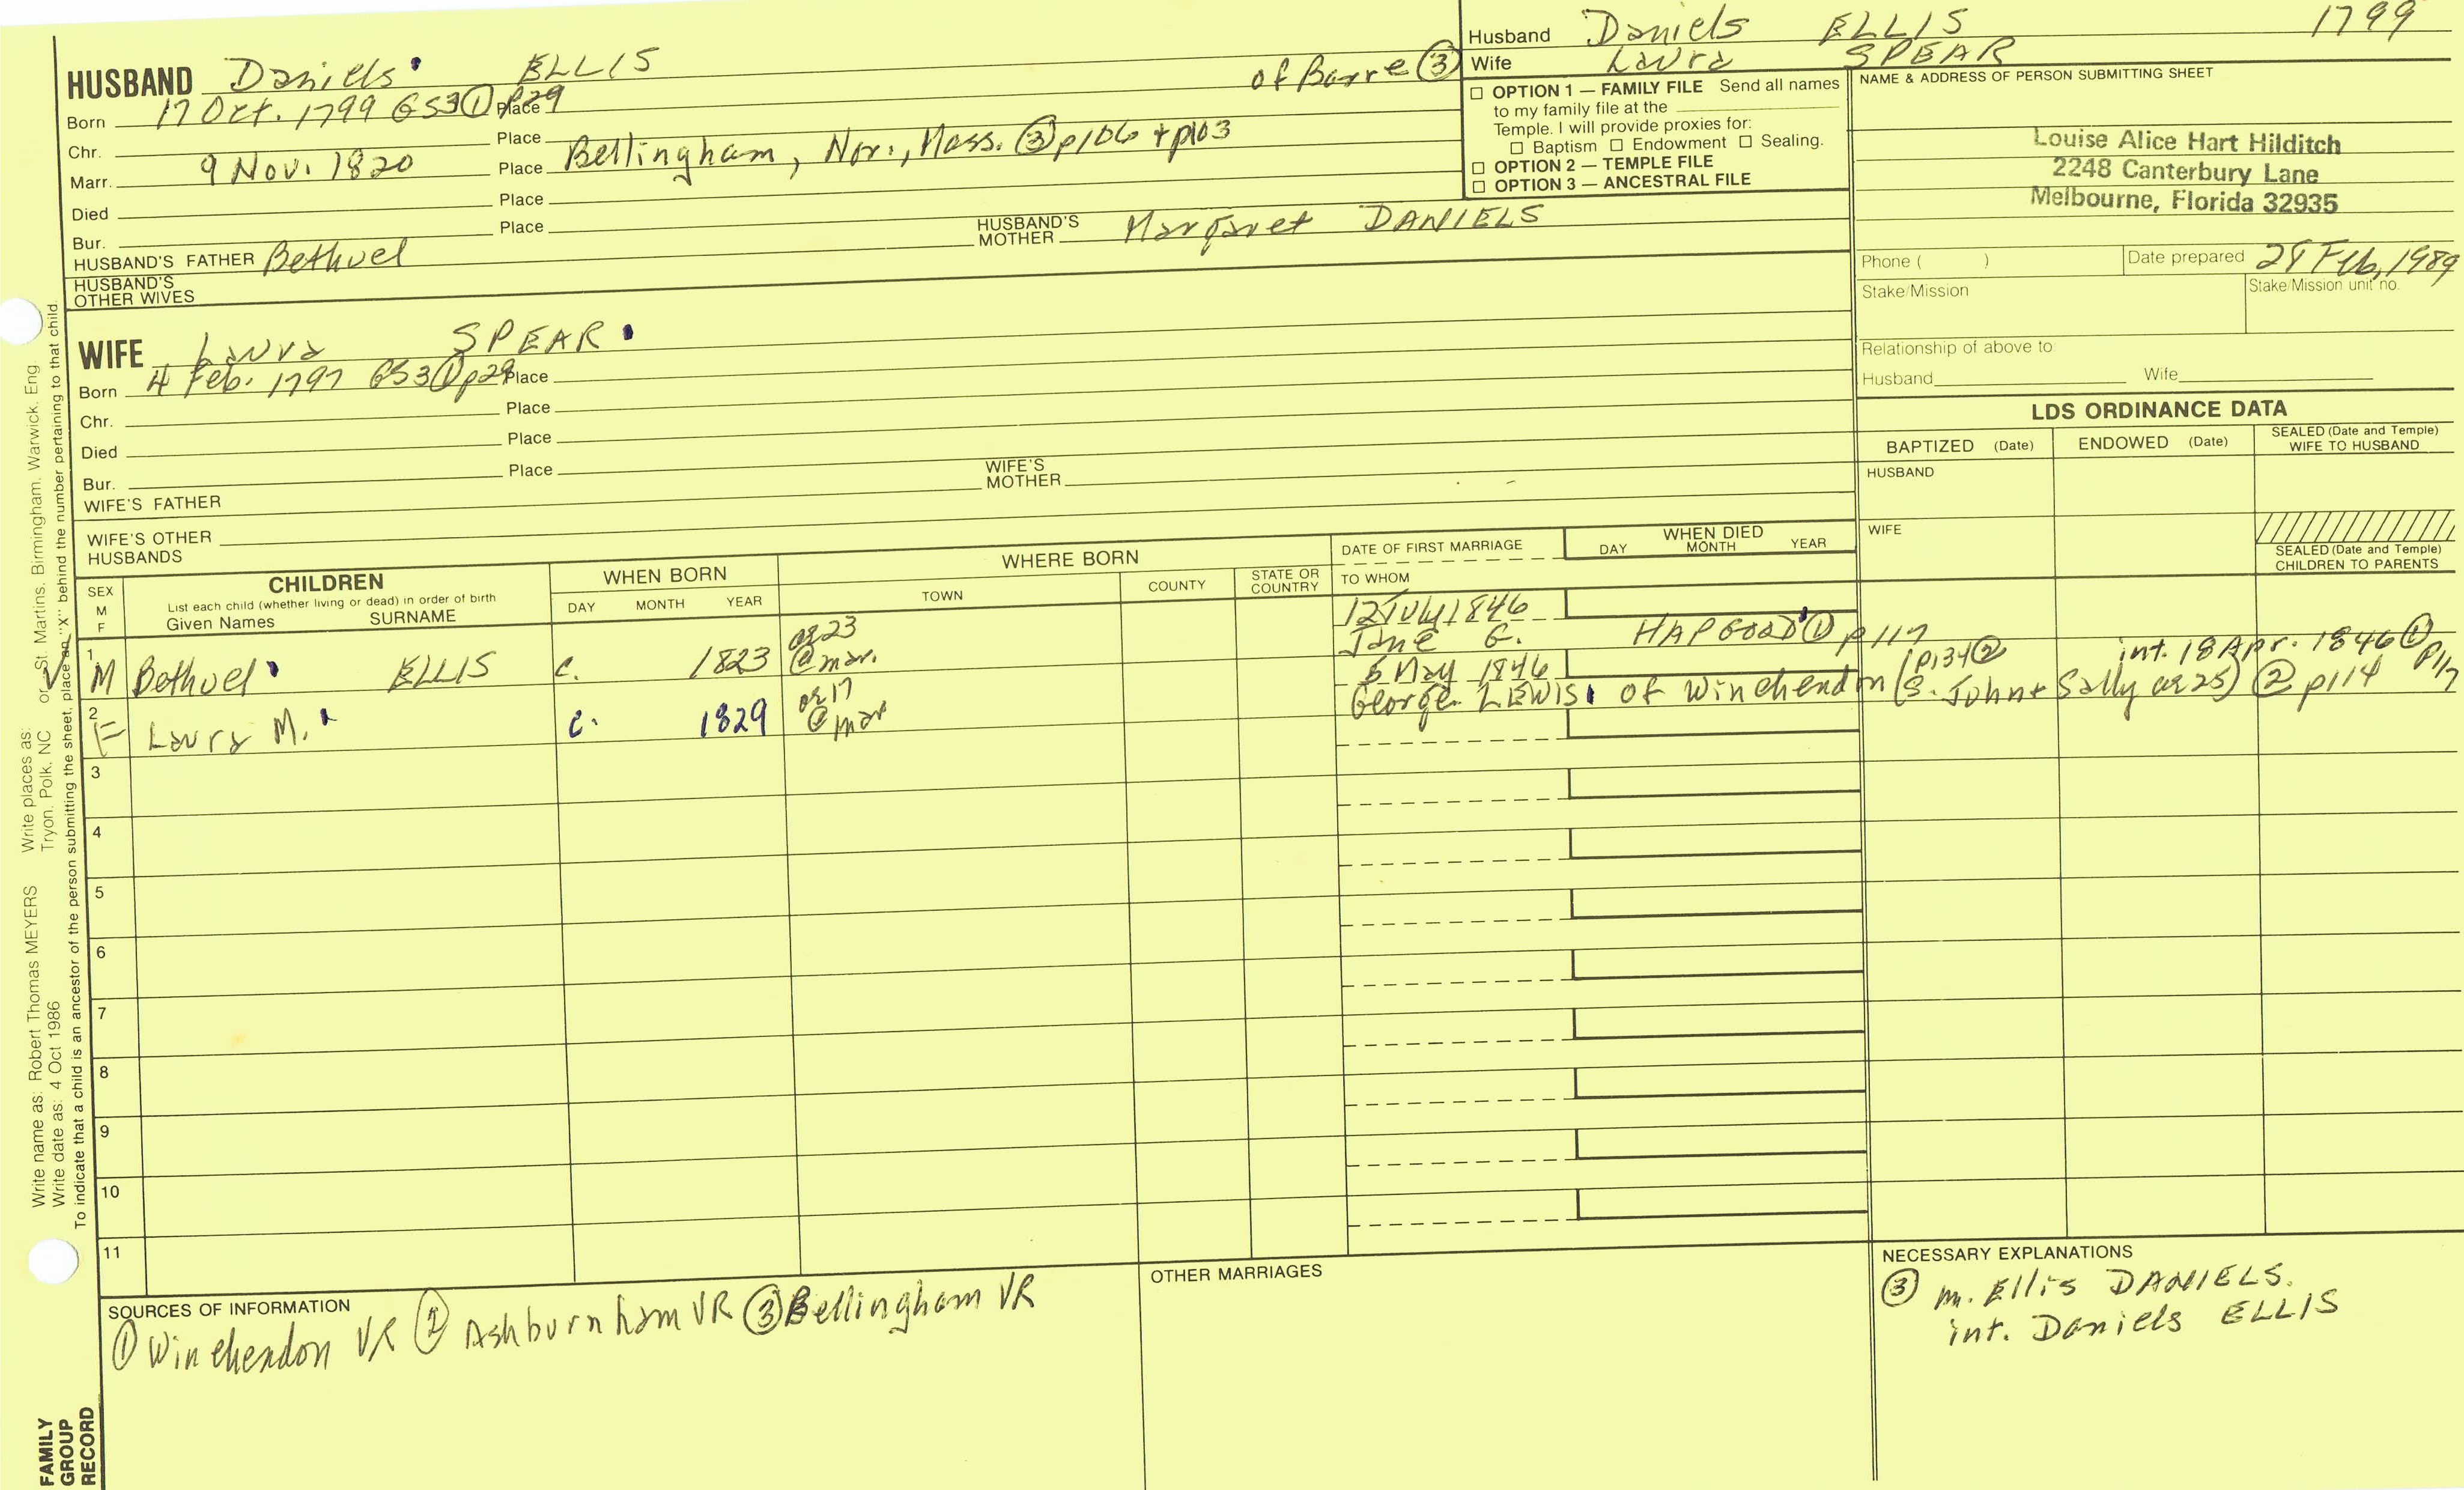 HUSBAND Daniels ELLIS of Barre ③
Born 17 Oct. 1799 GS3 ① p29 Place
Chr. Place
Marr. 9 Nov. 1820 Place Bellingham, Nor., Mass. ③ p106 + p103
Died Place
Bur. Place
HUSBAND'S FATHER Bethuel HUSBAND'S MOTHER Margaret DANIELS
HUSBAND'S OTHER WIVES
WIFE Laura SPEAR
Born 4 Feb. 1797 GS3 ① p29 Place
Chr. Place
Died Place
Bur. Place
WIFE'S FATHER WIFE'S MOTHER
WIFE'S OTHER HUSBANDS
Husband Daniels ELLIS 1799
Wife Laura SPEAR
☐ OPTION 1 — FAMILY FILE Send all names
to my family file at the
Temple. I will provide proxies for:
☐ Baptism ☐ Endowment ☐ Sealing.
☐ OPTION 2 — TEMPLE FILE
☐ OPTION 3 — ANCESTRAL FILE
NAME & ADDRESS OF PERSON SUBMITTING SHEET
Louise Alice Hart Hilditch
2248 Canterbury Lane
Melbourne, Florida 32935
Phone ( ) Date prepared 28 Feb, 1989
Stake/Mission Stake/Mission unit no.
Relationship of above to
Husband Wife
LDS ORDINANCE DATA
BAPTIZED (Date) ENDOWED (Date) SEALED (Date and Temple) WIFE TO HUSBAND
HUSBAND
WIFE
SEALED (Date and Temple) CHILDREN TO PARENTS
SEX M F
CHILDREN
List each child (whether living or dead) in order of birth
Given Names SURNAME
WHEN BORN
DAY MONTH YEAR
WHERE BORN
TOWN COUNTY STATE OR COUNTRY
DATE OF FIRST MARRIAGE
TO WHOM
WHEN DIED
DAY MONTH YEAR
1 M Bethuel ELLIS c. 1823 ae 23 @ mar. 12 July 1846
Jane G. HAPGOOD ① p117
(p134 ② int. 18 Apr. 1846 ① p117
2 F Laura M. c. 1829 ae 17 @ mar 5 May 1846
George LEWIS of Winchendon (s. John + Sally ae 25) ② p114
3
4
5
6
7
8
9
10
11
SOURCES OF INFORMATION
① Winchendon VR ② Ashburnham VR ③ Bellingham VR
OTHER MARRIAGES
NECESSARY EXPLANATIONS
③ m. Ellis DANIELS.
int. Daniels ELLIS
Write name as: Robert Thomas MEYERS Write places as: or St. Martins. Birmingham. Warwick. Eng
Write date as: 4 Oct 1986 Tryon. Polk. NC
To indicate that a child is an ancestor of the person submitting the sheet, place an "X" behind the number pertaining to that child.
FAMILY
GROUP
RECORD